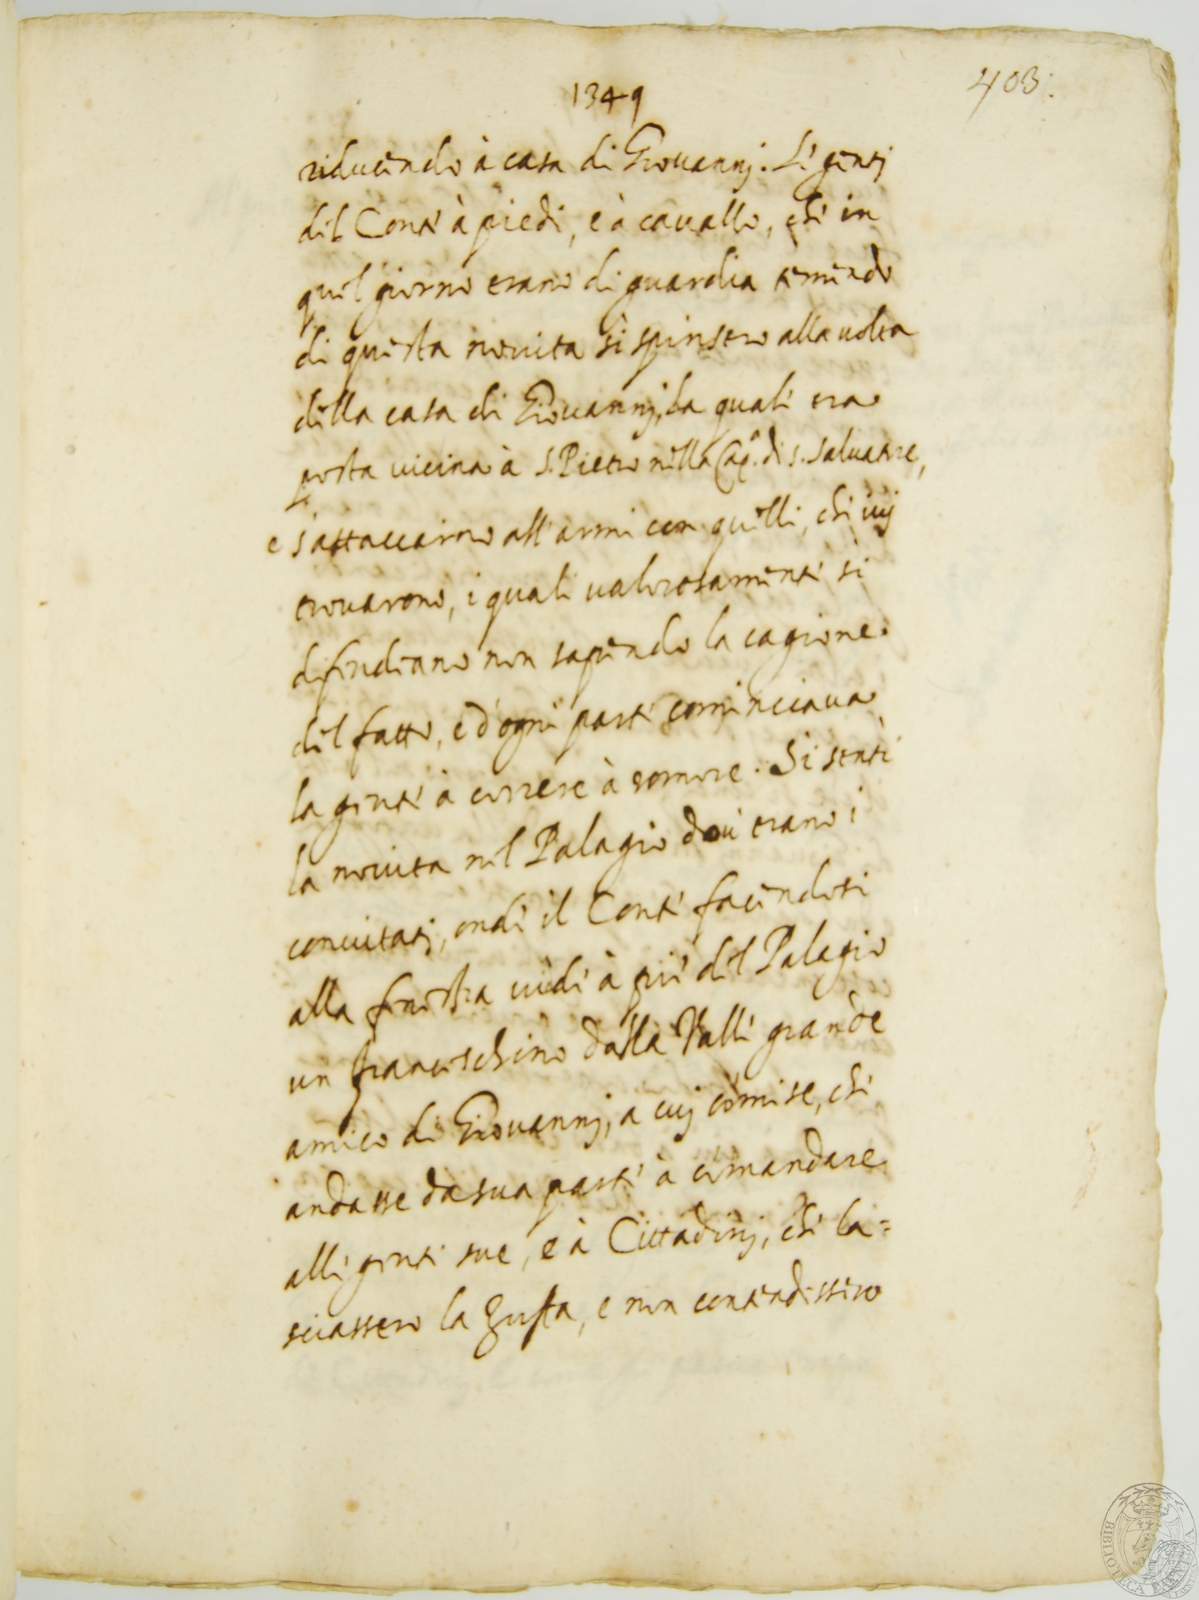 1349
403.
riducendo à casa di Giovannj. Le gentj
del Conte à piedi, e à cavallo, che in
quel giorno erano di guardia temendo
di questa novita si spinsero alla volta
della casa di Giovannj, la quale era
posta vicina à S. Pietro nella Capᵃ. di S. Salvatore,
e s'attaccarno all'armi con quelli, che ivj
trovarono, i quali valorosamente si
difendeano non sapendo la cagione
del fatto, e d'ogni parte cominciava
la gente à correre à romore. Si sentì
la novita nel Palagio dov'erano i
convitatj, onde il Conte facendosi
alla finestra vide à piè del Palagio
un Franceschino dalla Valle grande
amico di Giovannj, a cuj comise, che
andasse da sua parte à comandare
alle genti sue, e à Cittadinj, che la=
sciassero la Zuffa, e non contendessero
BIBLIOTECA